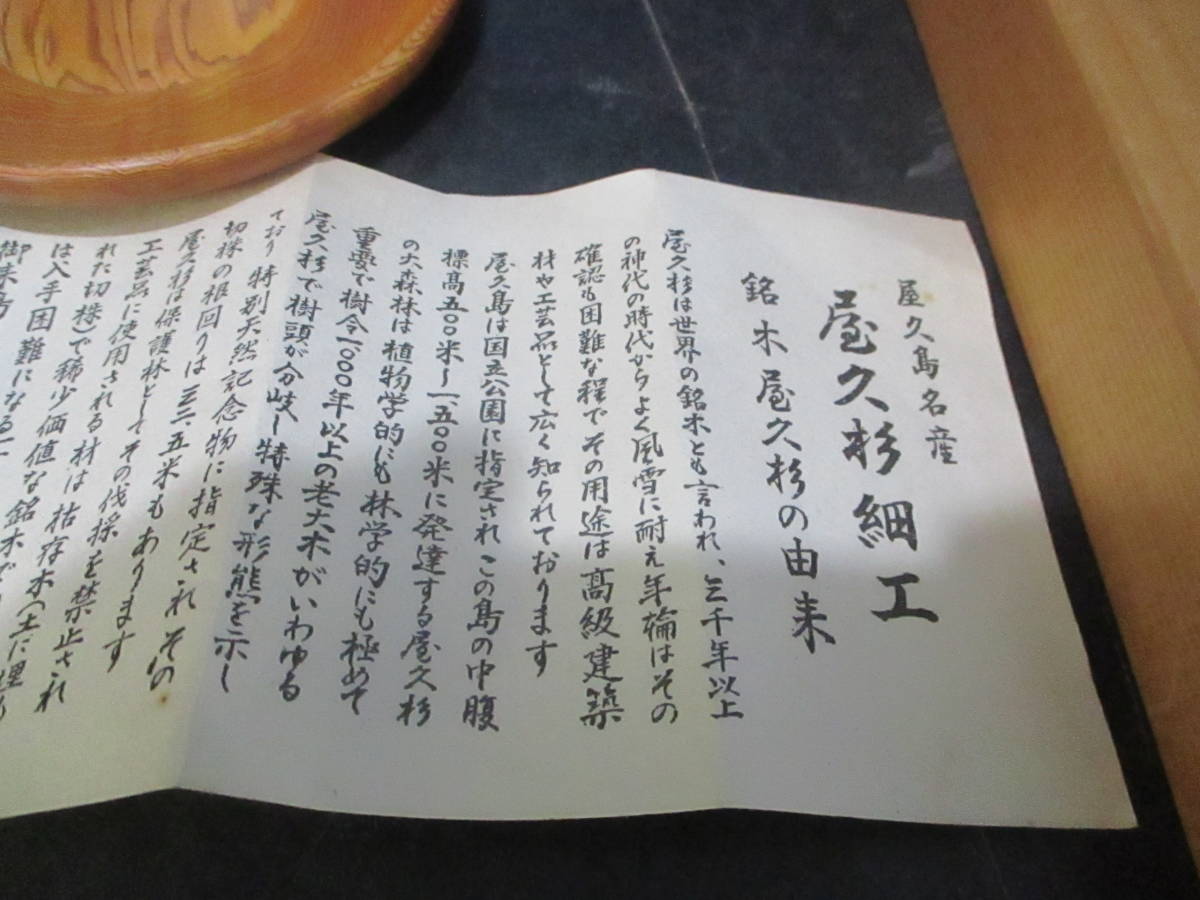 屋久島名産
屋久杉細工
銘木屋久杉の由来
屋久杉は世界の銘木とも言われ、三千年以上
の神代の時代からよく風雪に耐え年輪はその
確認も困難な程でその用途は高級建築
材や工芸品として広く知られております
屋久島は国立公園に指定されこの島の中腹
標高五〇〇米〜一、五〇〇米に発達する屋久杉
の大森林は植物学的にも林学的にも極めて
重要で樹令一〇〇〇年以上の老大木がいわゆる
屋久杉で樹頭が分岐し特殊な形態を示し
ており特別天然記念物に指定されその
切株の根回りは三二、五米もあります
屋久杉は保護林としてその伐採を禁止され
工芸品に使用される材は枯存木(土に埋
れた切株)で稀少価値な銘木で
は入手困難になる
御来島